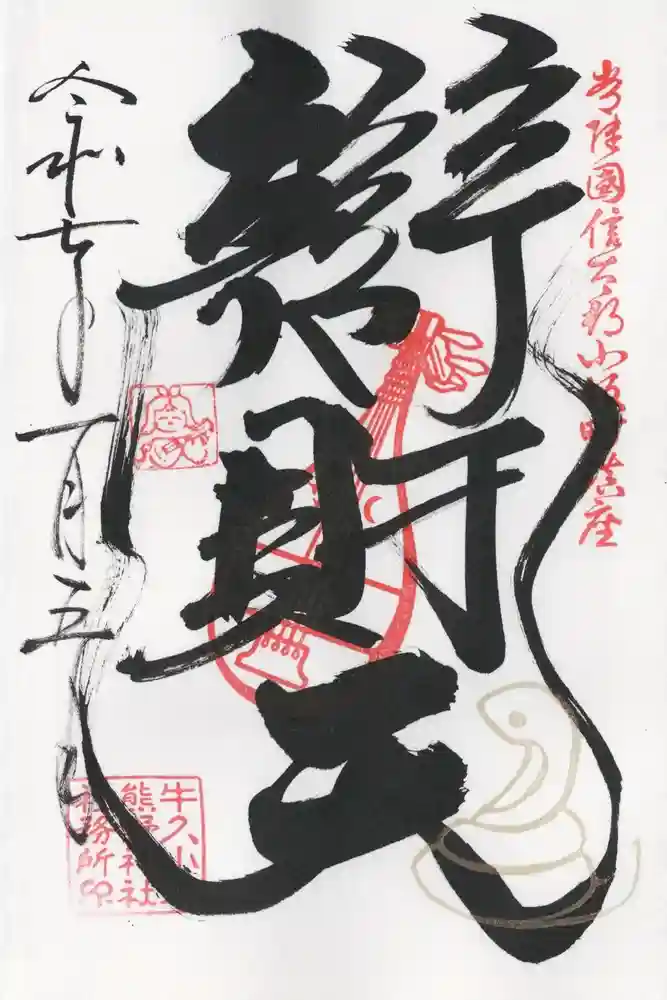 常陸國信太郡小坂町鎮座
辯財天
令和七年一月五日
牛久小
熊野神社
社務所印